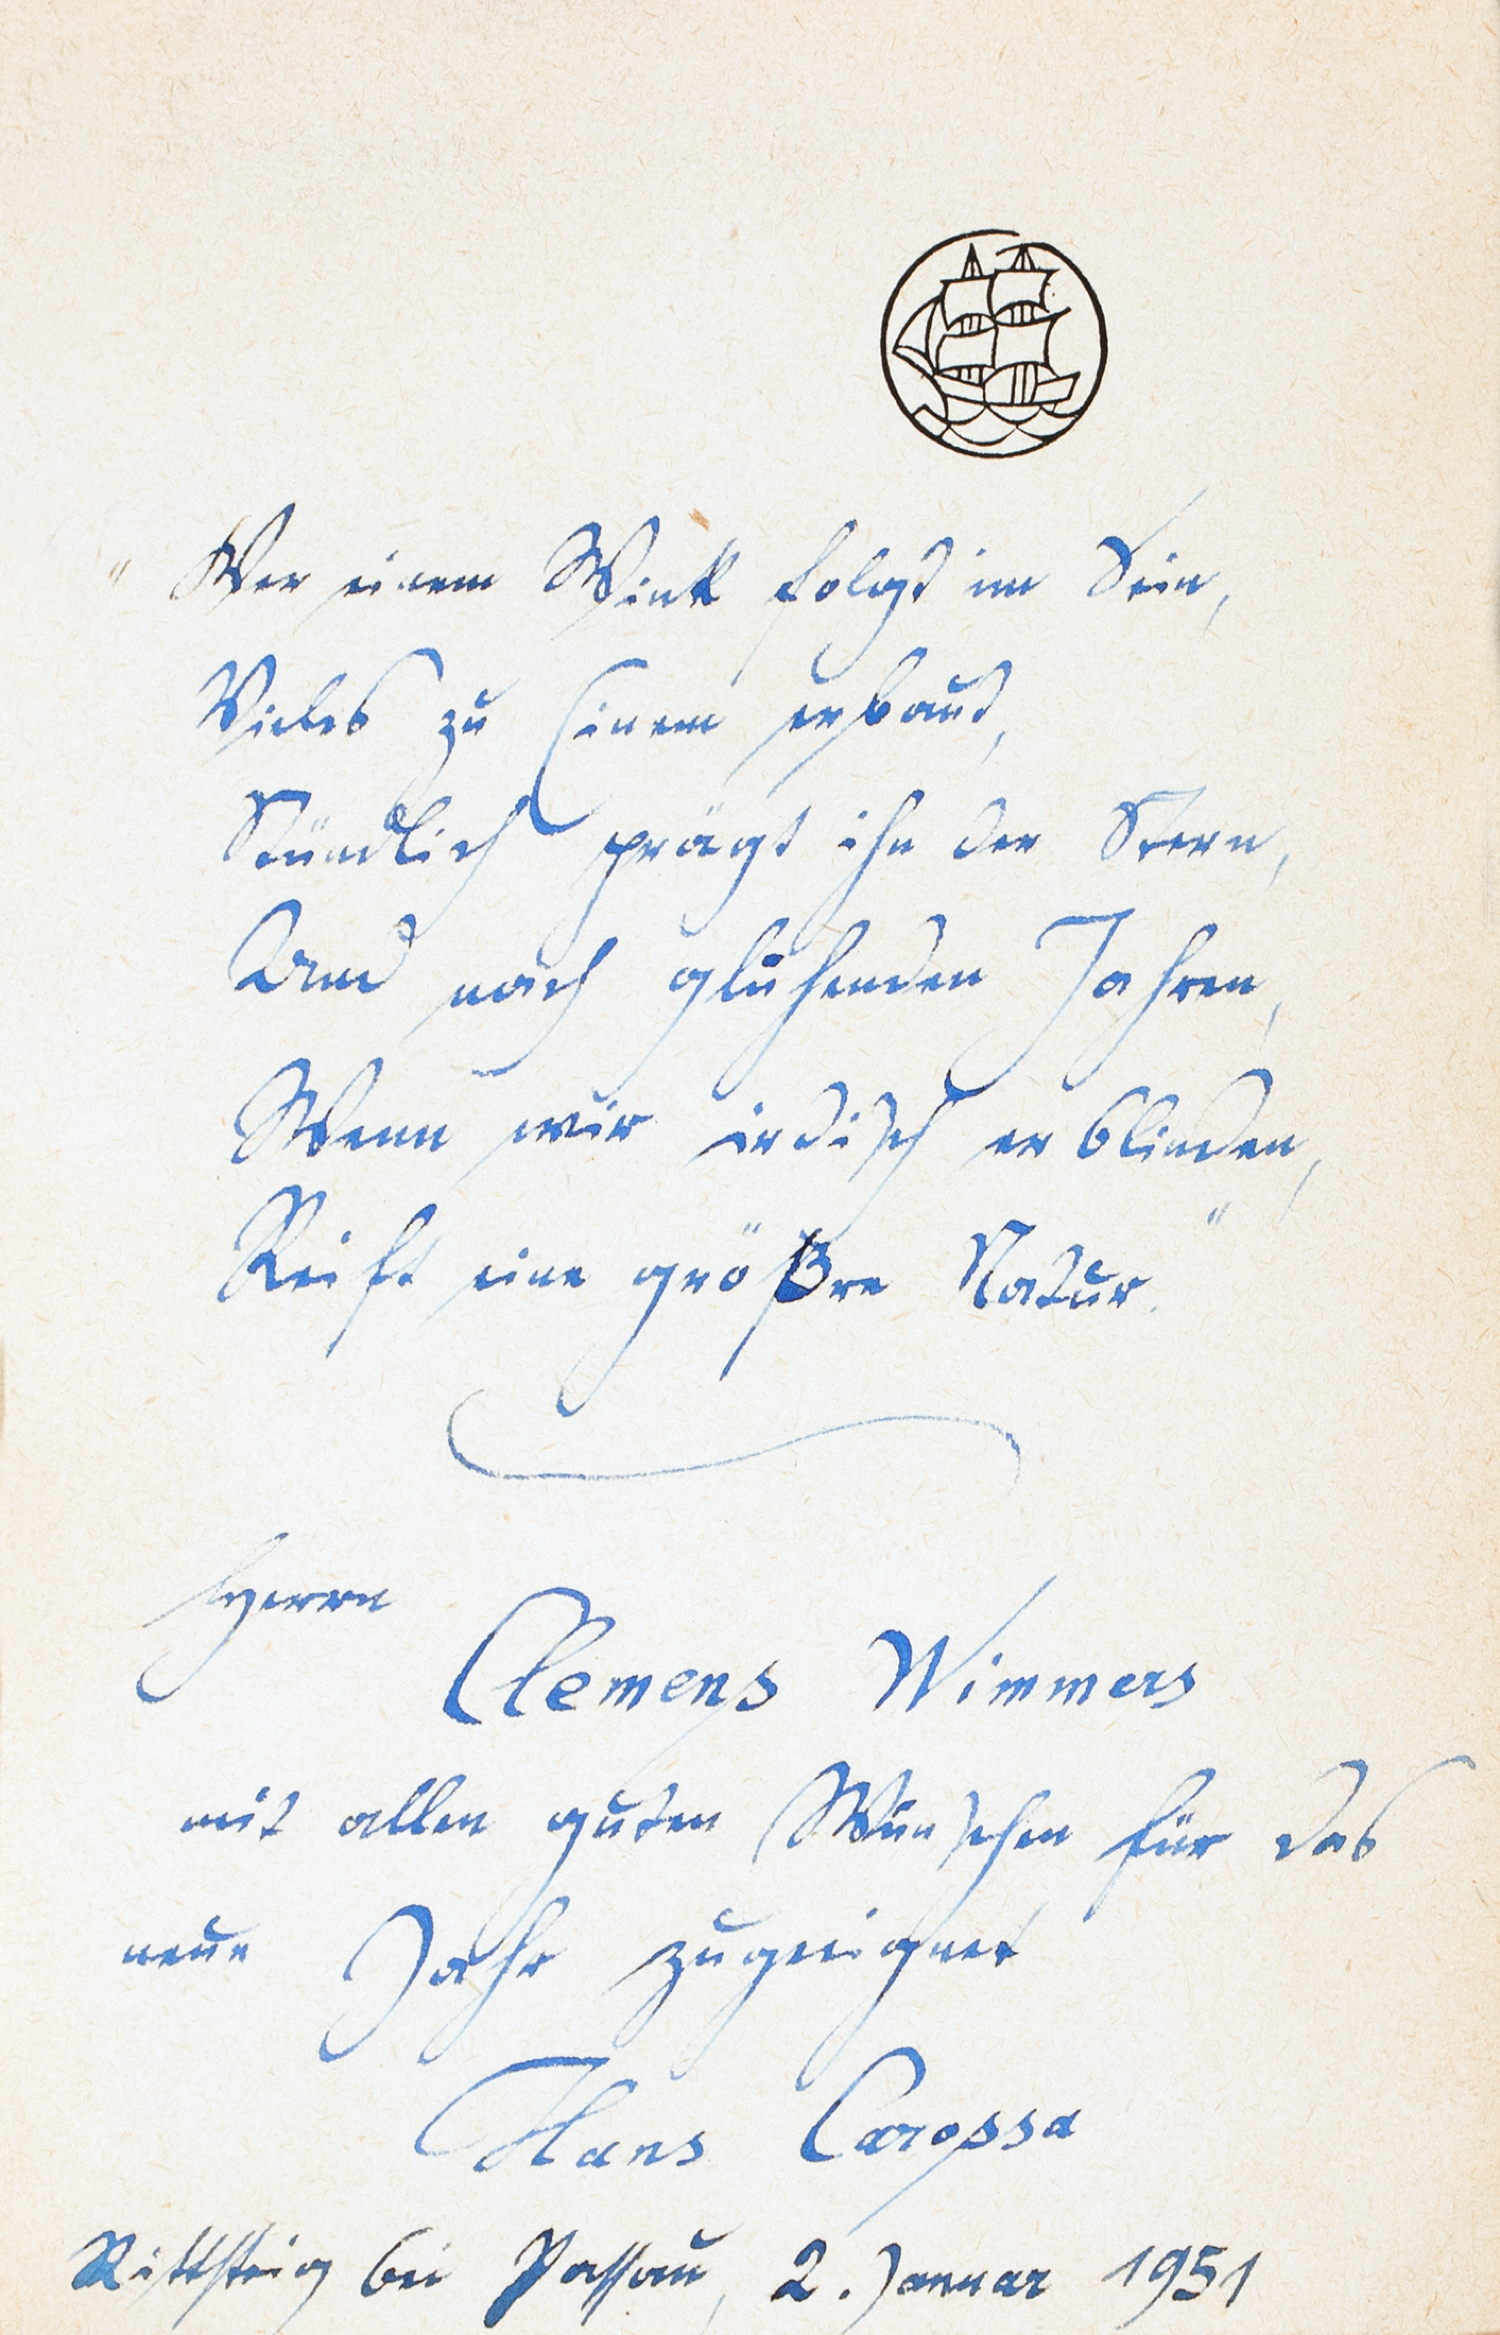 "Wer einem Wink folgt im Sein,
Vieles zu Einem erbaut,
Stündlich prägt ihn der Stern,
Und nach glühenden Jahren,
Wenn wir irdisch erblinden,
Reift eine größre Natur."
Herrn
Clemens Wimmers
mit allen guten Wünschen für das
neue Jahr zugeeignet
Hans Carossa
Rittsteig bei Passau, 2. Januar 1951